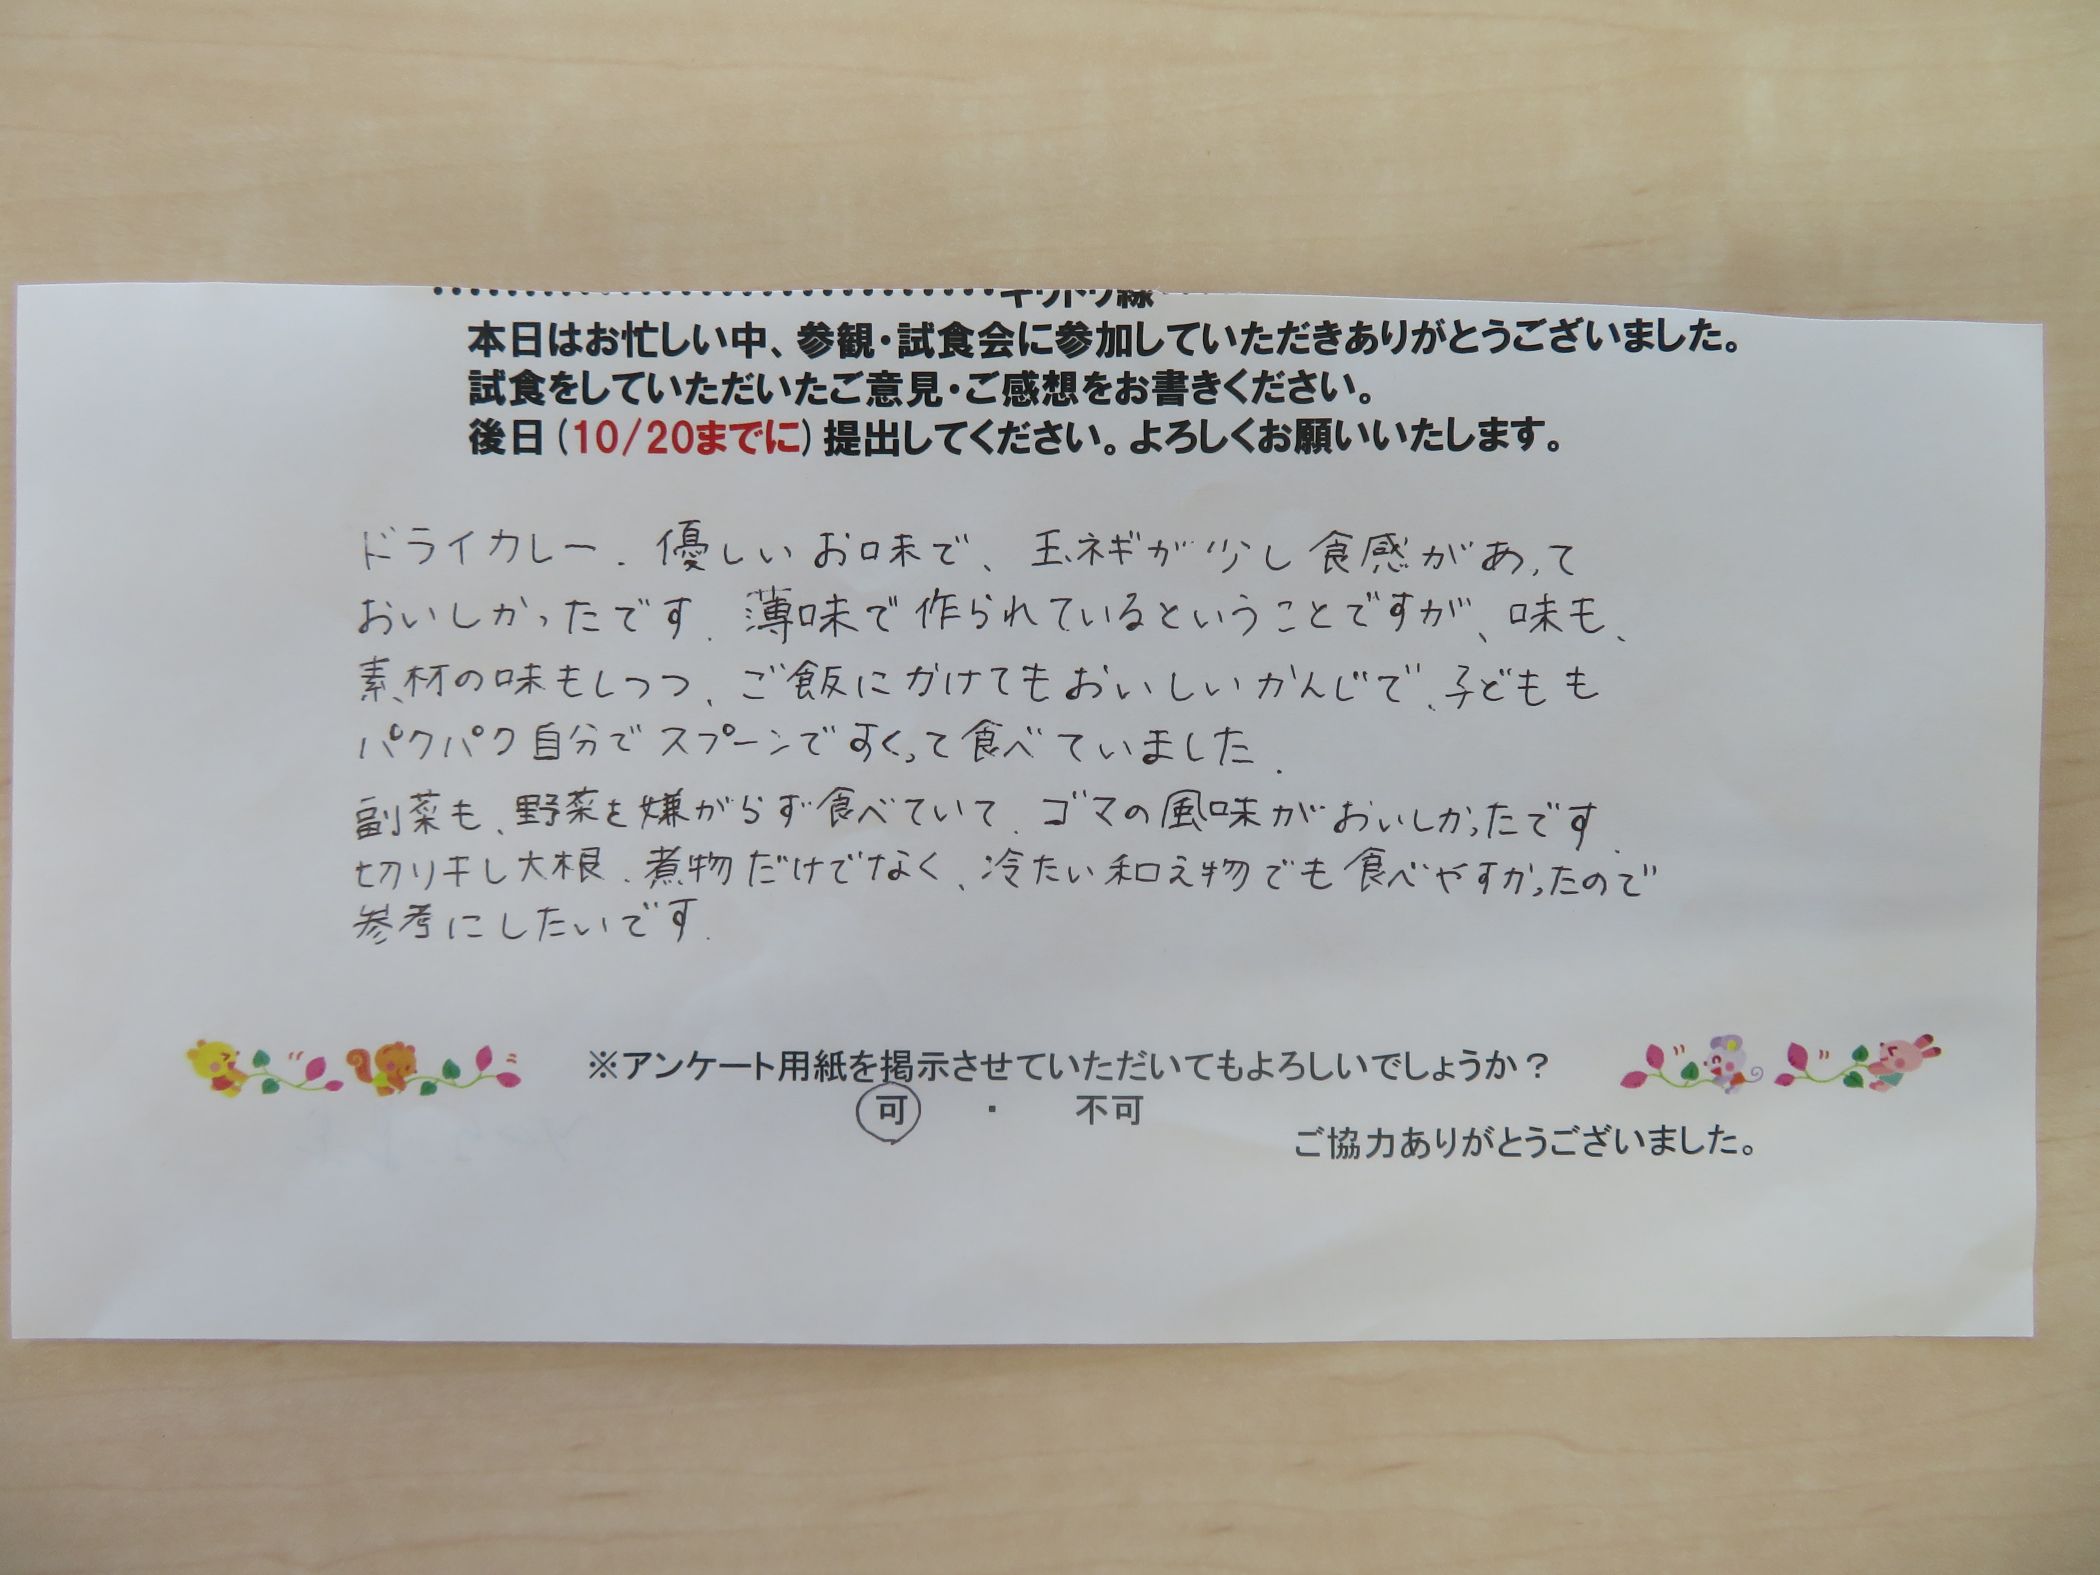 キリトリ線
本日はお忙しい中、参観・試食会に参加していただきありがとうございました。
試食をしていただいたご意見・ご感想をお書きください。
後日(10/20までに)提出してください。よろしくお願いいたします。
ドライカレー、優しいお味で、玉ネギが少し食感があって
おいしかったです。薄味で作られているということですが、味も、
素材の味もしつつ、ご飯にかけてもおいしいかんじで、子どもも
パクパク自分でスプーンですくって食べていました。
副菜も、野菜を嫌がらず食べていて、ゴマの風味がおいしかったです。
切り干し大根、煮物だけでなく、冷たい和え物でも食べやすかったので
参考にしたいです。
※アンケート用紙を掲示させていただいてもよろしいでしょうか？
可 ・ 不可
ご協力ありがとうございました。